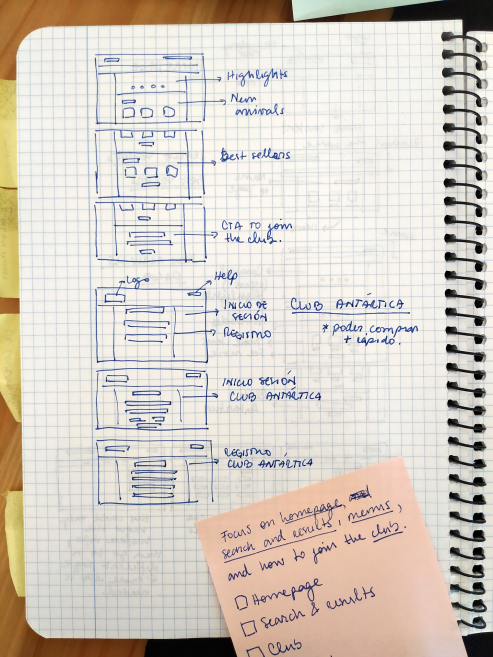 Highlights
New
arrivals
Best sellers
CTA TO join
the club.
Logo
Help
INICIO DE
SESIÓN
REGISTRO
CLUB ANTÁRTICA
* poder comprar
+ rápido.
INICIO SESIÓN
CLUB ANTÁRTICA
REGISTRO
CLUB ANTÁRTICA
Focus on homepage,
search and results, menus,
and how to join the club.
Homepage
Search & results
Club